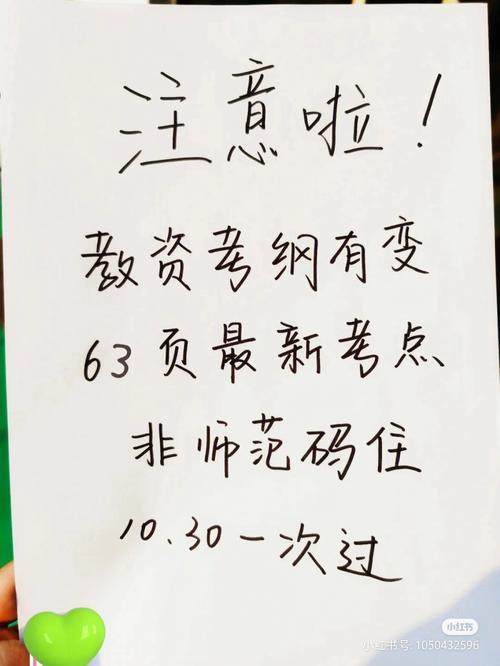 注意啦！
教资考纲有变
63页最新考点
非师范码住
10.30一次过
小红书
小红书号: 1050432596